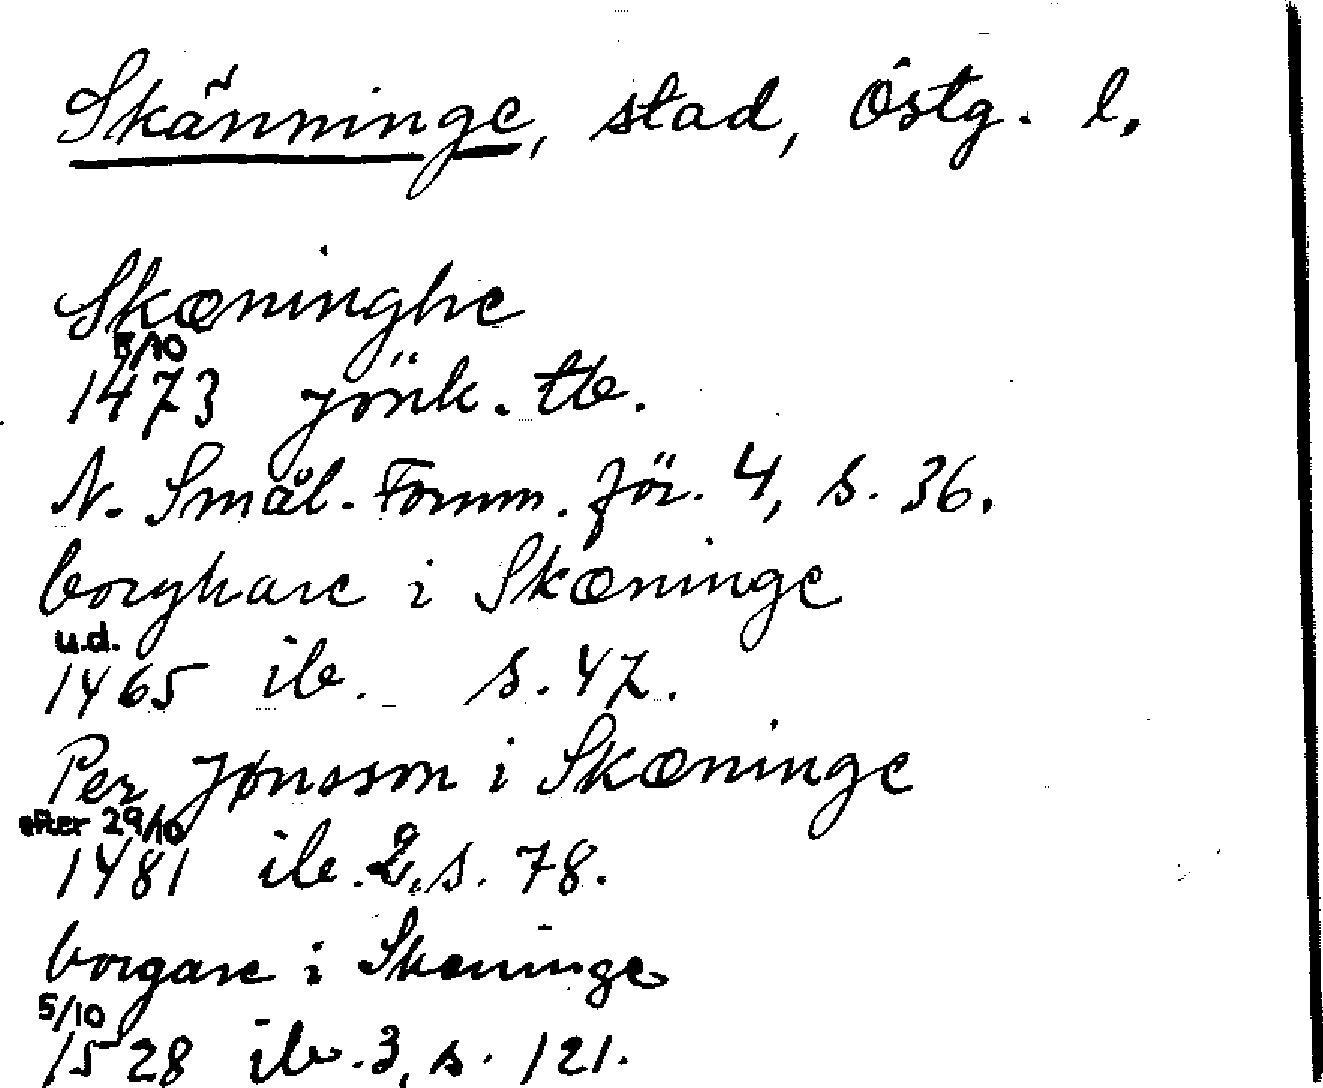 Skänninge, stad, Östg. l.
Skæninghe
5/10
1473 Jönk. tb.
N. Smål. Fornm. för. 4, s. 36.
borghare i Skæninge
u.d.
1465 ib. s. 47.
Per Jønsson i Skæninge
efter 29/10
1481 ib. 2, s. 78.
borgare i Skeninge
5/10
1528 ib. 3, s. 121.